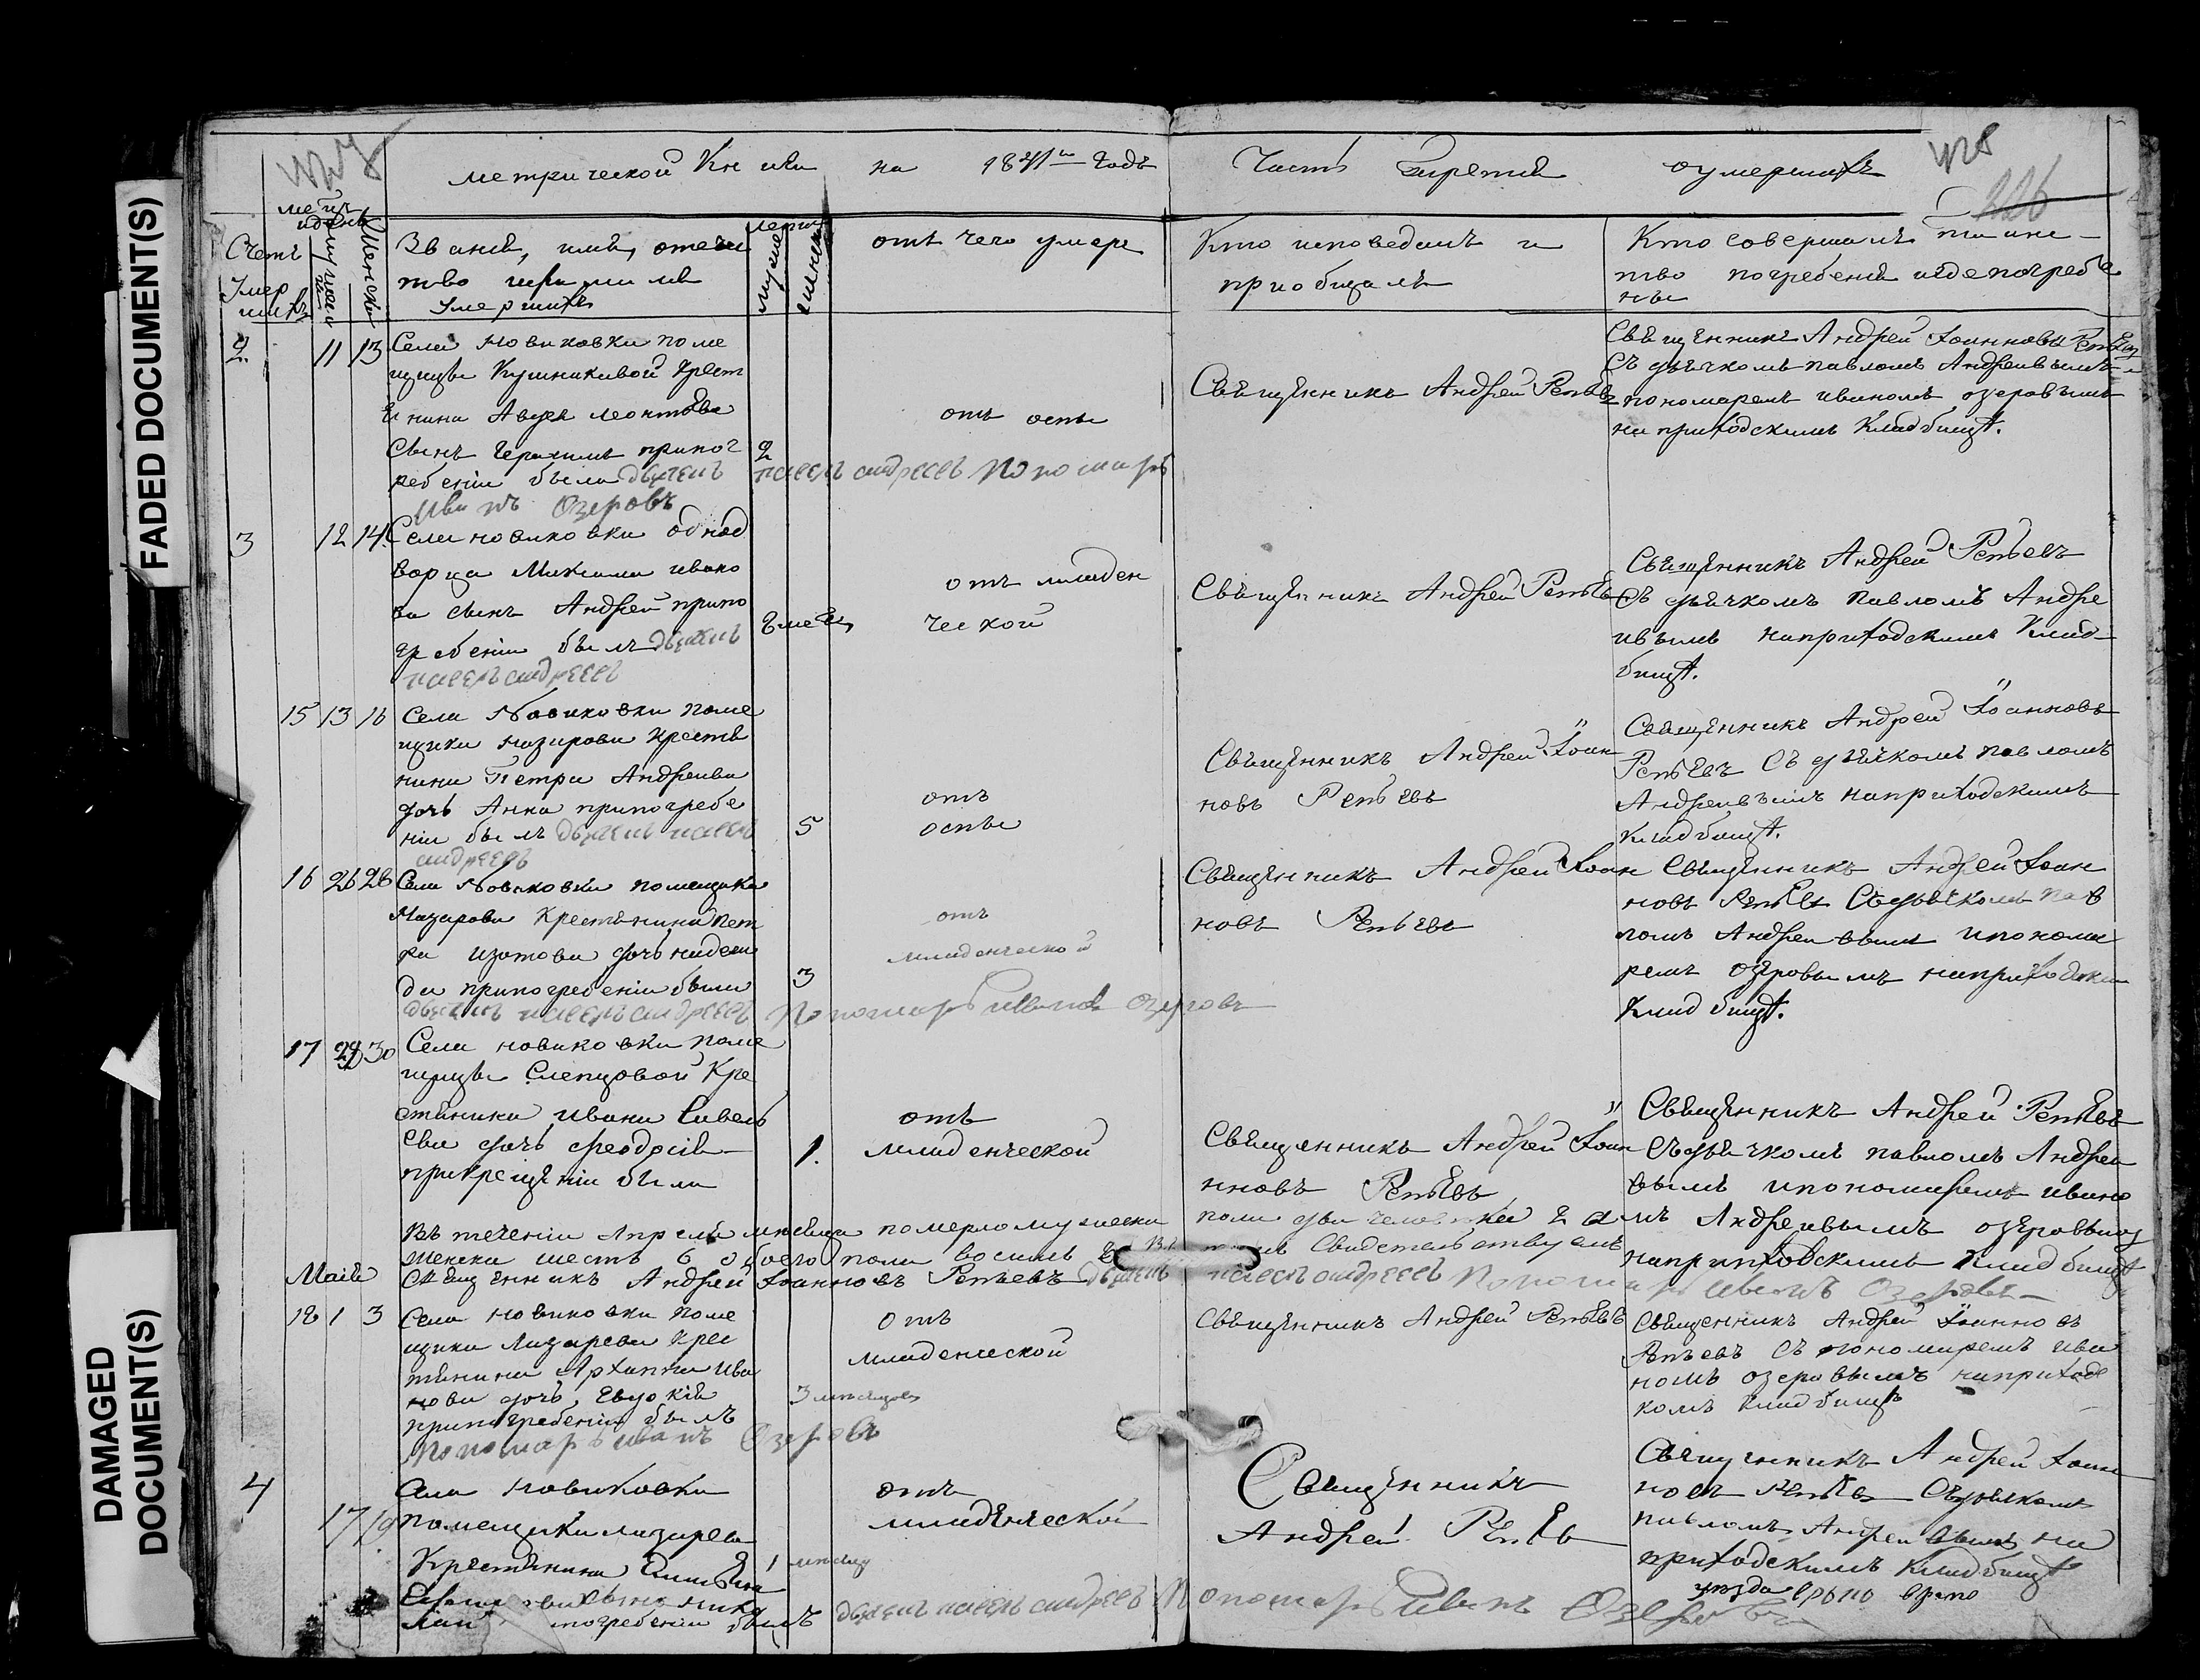 FADED DOCUMENT(S)
DAMAGED DOCUMENT(S)
метрической Кн иги на 1841 годъ
Часть Третия оумершихъ
428
226
Счетъ Умер шихъ
Званiе, имя, отечи
тво ифамилiя
Умершихъ
лета
отъ чего умеръ
Кто исповедалъ и
приобщалъ
Кто совершалъ таин
тво погребенiя игдепогребе
ны
2. 11 13 Села новиковки поме
щицы Кушниковой Крест
нина Леонтьева
Сынъ припог 2
ребенiи были дьячекъ павелъ андреевъ Пономарь
Иванъ Озеровъ
отъ оспы
Священникъ Андрей Репьевъ
Священникъ Андрей Iоанновъ Репьевъ
Съ дьячкомъ павломъ Андреевымъ и
пономаремъ иваномъ озеровымъ
на приходскимъ Кладбищѣ.
3 12 14 Села новиковки однод
ворца Максима ивано
ва сынъ Андрей припо
гребенiи былъ дьячекъ
павелъ андреевъ
отъ младен
ческой
Священникъ Андрей Репьевъ
Священникъ Андрей Репьевъ
Съ дьячкомъ Павломъ Андре
ивымъ наприходскимъ Клад
бищѣ.
15 13 16 Села Новиковки поме
щика назарова крестья
нина Петра Андреива
дочь Анна припогребе
нiи былъ дьячекъ павелъ 5
андреевъ
отъ
оспы
Священникъ Андрей Iоан
новъ Репьевъ
Священникъ Андрей Iоанновъ
Репьевъ Съ дьячкомъ павломъ
Андреивымъ наприходскимъ
Кладбищѣ.
16 26 28 Села Новиковки помещика
Назарова Крестьнина Пет
ра изотова дочь надеж
да припогребенiи были 3
дьячекъ павелъ андреевъ Пономарь Иванъ Озеровъ
отъ
младенческой
Священникъ Андрей Iоан
новъ Репьевъ
Священникъ Андрей Iоан
новъ Репьевъ Съ дьячкомъ Пав
ломъ Андреивымъ ипонома
ремъ озеровымъ наприходским
Кладбищѣ.
17 30 Села новиковки поме
щицы Слепцовой Кре
стьянина ивана Савель
ева дочь феодосiя 1.
прикрещенiи были
отъ
младенческой
Священникъ Андрей Iоан
нновъ Репьевъ
Священникъ Андрей Репьевъ
Съ дьячкомъ павломъ Андреи
вымъ ипономаремъ ивано
мъ Андреивымъ озеровымъ
наприходскимъ Кладбищѣ
Въ теченiи Апреля мѣсяца померло мужеска пола два человека 2
Женска шесть 6 обоего пола восемь Свидетельствуемъ
Священникъ Андрей Iоанновъ Репьевъ дьячекъ павелъ андреевъ Пономарь Иванъ Озеровъ
Маiя
18 1 3 Села новиковки поме
щика Лазарева крес
тянина Архипа Ива
нова дочь Евдокiя 3 мѣсяцов
припогребенiи былъ
Пономарь иванъ Озеровъ
отъ
младенческой
Священникъ Андрей Репьевъ
Священникъ Андрей Iоанновъ
Репьевъ Съ пономаремъ ива
номъ озеровымъ наприходс
комъ Кладбищѣ
4 17 19 Села новиковки
помещика лазарева
Крестянина 1 мѣсяц
сынъ нико
лай погребенiи былъ дьячекъ павелъ андреевъ Пономарь Иванъ Озеровъ
отъ
младенческой
Священникъ
Андрей Репьевъ
Священникъ Андрей Iоан
новъ Репьевъ Съ дьячкомъ
павломъ Андреивымъ на
приходскимъ Кладбищѣ